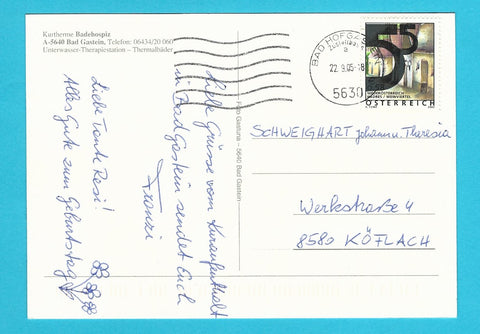 Kurtherme Badehospiz
A-5640 Bad Gastein, Telefon: 06434/20 060
Unterwasser-Therapiestation – Thermalbäder
Liebe Tante Resi!
Alles Gute zum Geburtstag
Liebe Grüsse vom Kuraufenthalt
in Bad Gastein sendet Euch
Franzi
5640 Bad Gastein
BAD HOFGASTEIN
a
22.9.05-18
5630
55
NIEDERÖSTERREICH
WEINVIERTEL
ÖSTERREICH
SCHWEIGHART Johann u. Theresia
Werkstraße 4
8580 KÖFLACH